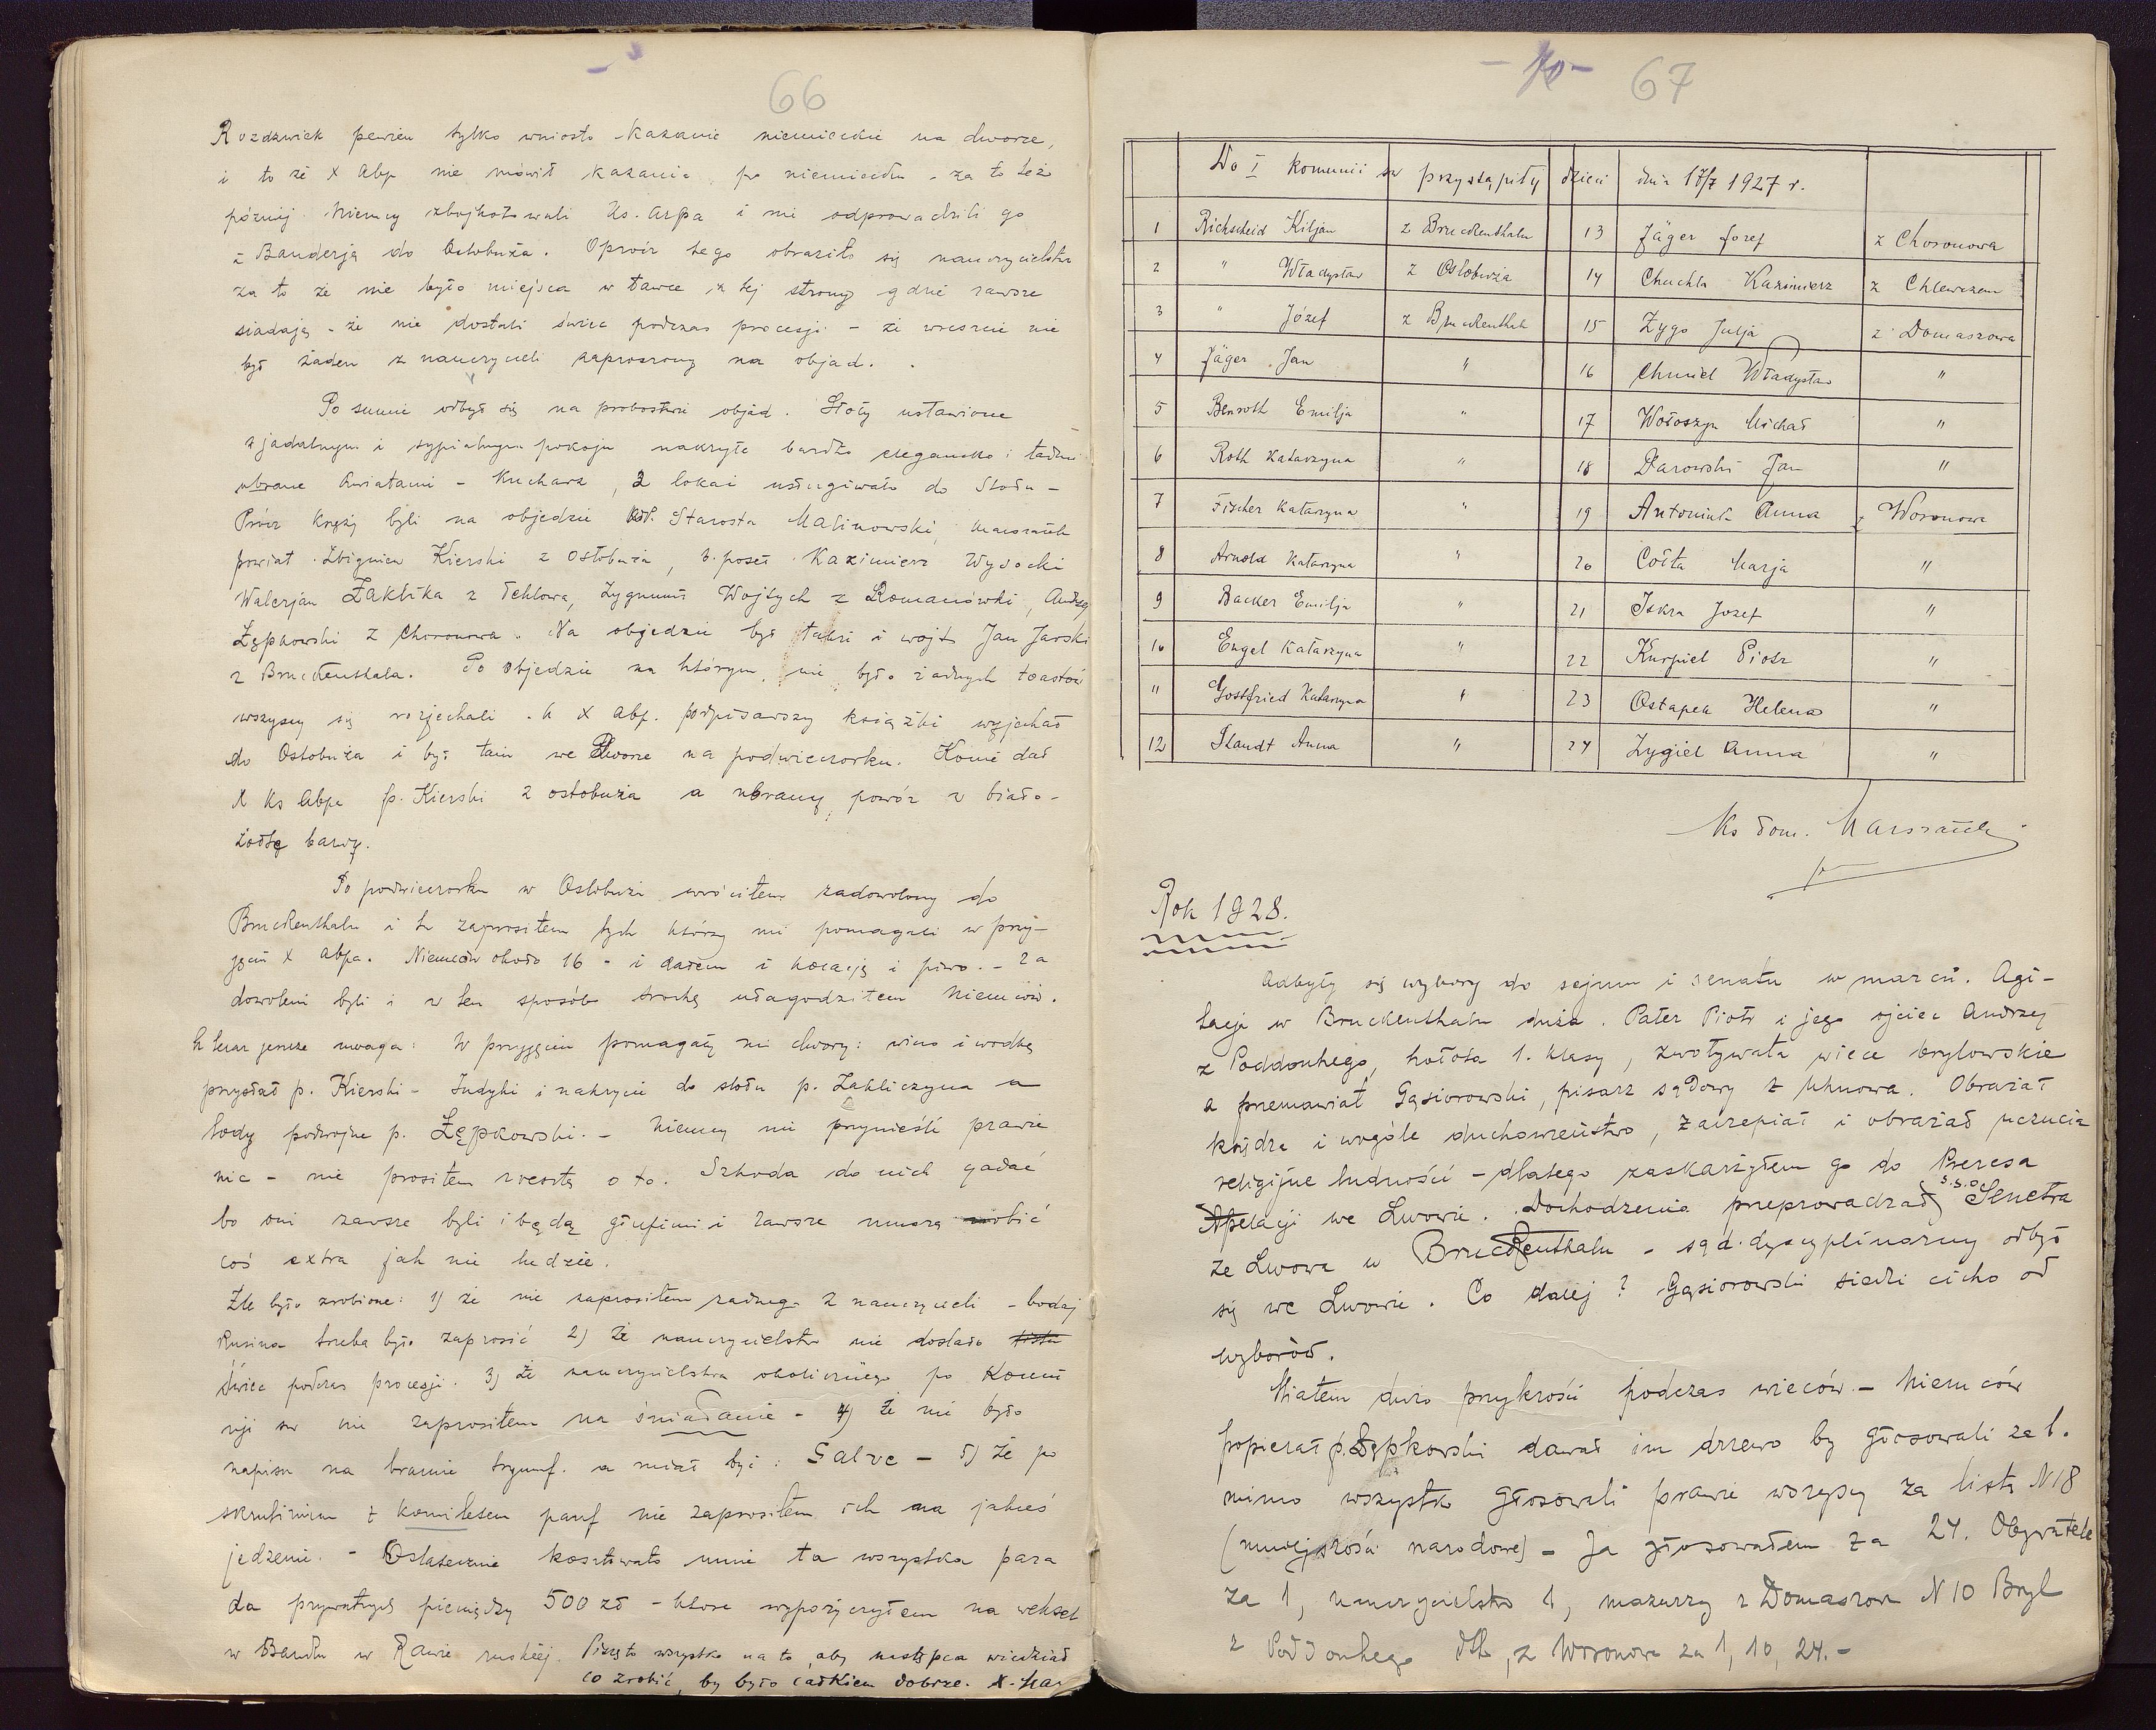 66
Rozdźwiek pewien tylko wniosło kazanie niemieckie na dworze,
i to że X Abp nie mówił kazania po niemiecku - za to też
później Niemcy zbojkotowali Ks. Arpa i nie odprowadzili go
z Banderją do Ostobuża. Oprócz tego obraziło się nauczycielstwo
za to że nie było miejsca w ławce z tej strony gdzie zawsze
siadają - że nie dostali świec podczas procesji - że wreszcie nie
był żaden z nauczycieli zaproszony na objad.
Po sumie odbył się na probostwie objad. Stoły ustawione
w jadalnym i sypialnym pokoju nakryte bardzo elegancko i ładnie
ubrane kwiatami - Kucharz, 2 lokai usługiwało do stołu -
Prócz księży byli na objedzie Starosta Malinowski, marszałek
powiat. Zbigniew Kierski z Ostobuża, b. poseł Kazimierz Wysocki
Walerjan Zaklika z Tehlowa, Zygmunt Wojtych z Romanówki, Andrzej
Łępkowski z Choronowa. Na objedzie był także i wójt Jan Jarski
z Bruckenthala. Po objedzie na którym nie było żadnych toastów
wszyscy się rozjechali. A X Abp. podpisawszy książki wyjechał
do Ostobuża i był tam we Dworze na podwieczorku. Konie dał
X Ks Abpa p. Kierski z ostobuża a ubrany powóz w biało-
żółtą barwę.
Po podwieczorku w Ostobużu wróciłem zadowolony do
Bruckenthalu i tu zaprosiłem tych którzy mi pomagali w przy-
jęciu X Abpa. Niemców około 16 - i dałem i kolację i piwo. - Za
dowoleni byli i w ten sposób trochę ułagodziłem Niemców.
A teraz jeszcze uwaga: W przyjęciu pomagały mi dwory: wino i wódkę
przysłał p. Kierski - Indyki i nakrycie do stołu p. Zakliczyna a
lody podwójne p. Łępkowski. - Niemcy mi przynieśli prawie
nic - nie prosiłem zresztą o to. Szkoda do nich gadać
bo oni zawsze byli i będą głupimi i zawsze muszą robić
coś extra jak nie ludzie.
Źle było zrobione: 1) że nie zaprosiłem żadnego z nauczycieli - bodaj
Rusina trzeba było zaprosić 2) że nauczycielstwo nie dostało
świec podczas procesji. 3) że nauczycielstwa okolicznego po Komu
nji św nie zaprosiłem na śniadanie - 4) że nie było
napisu na bramie tryumf. a miał być: Salve - 5) że po
skrutinium z komitetem paraf nie zaprosiłem ich na jakieś
jedzenie. - Ostatecznie kosztowała mnie ta wszystka para
da prywatnych pieniędzy 500 zł - które wypożyczyłem na weksel
w Banku w Rawie ruskiej. Piszę to wszystko na to, aby następca wiedział
co zrobić, by było całkiem dobrze. X. Mar
- 10 - 67
Do I komunii św przystąpiły dzieci dnia 17/7 1927 r.
1 Richscheid Kiljan z Bruckenthalu 13 Jäger Jozef z Choronowa
2 " Władysław z Ostobuża 14 Chuchla Kazimierz z Chlewczan
3 " Józef z Bruckenthalu 15 Zygo Julja z Domaszowa
4 Jäger Jan " 16 Chmiel Władysław "
5 Benroth Emilja " 17 Wołoszyn Michał "
6 Roth Katarzyna " 18 Darowski Jan "
7 Fischer Katarzyna " 19 Antoniak Anna z Woronowa
8 Arnold Katarzyna " 20 Cołta Marja "
9 Backer Emilja " 21 Iskra Jozef "
10 Engel Katarzyna " 22 Kurpiel Piotr "
11 Gottfried Katarzyna " 23 Ostapek Helena "
12 Staudt Anna " 24 Zygiel Anna "
Ks Dom. Marszałek
Rok 1928.
Odbyły się wybory do sejmu i senatu w marcu. Agi-
tacja w Bruckenthalu duża. Pater Piotr i jego ojciec Andrzej
z Poddouhego, hołota 1. klasy, zwoływała wiece brylowskie
a przemawiał Gąsiorowski, pisarz sądowy z Uhnowa. Obrażał
księdza i wogóle duchowieństwo, zaczepiał i obrażał uczucia
religijne ludności - dlatego zaskarżyłem go do Prezesa
Apelacji we Lwowie. Dochodzenia przeprowadzał s.s.o Senetra
ze Lwowa w Bruckenthalu - sąd dyscyplinarny odbył
się we Lwowie. Co dalej? Gąsiorowski siedzi cicho od
wyborów.
Miałem dużo przykrości podczas wieców. - Niemców
popierał p. Łępkowski dawał im drzewo by głosowali za 1.
mimo wszystko głosowali prawie wszyscy za listą N 18
(mniejszość narodowe) - Ja głosowałem za 24. Obywatele
za 1, nauczycielstwo 1, mazurzy z Domaszowa N 10 Bryl
z Poddouhego , z Woronowa za 1, 10, 24. -